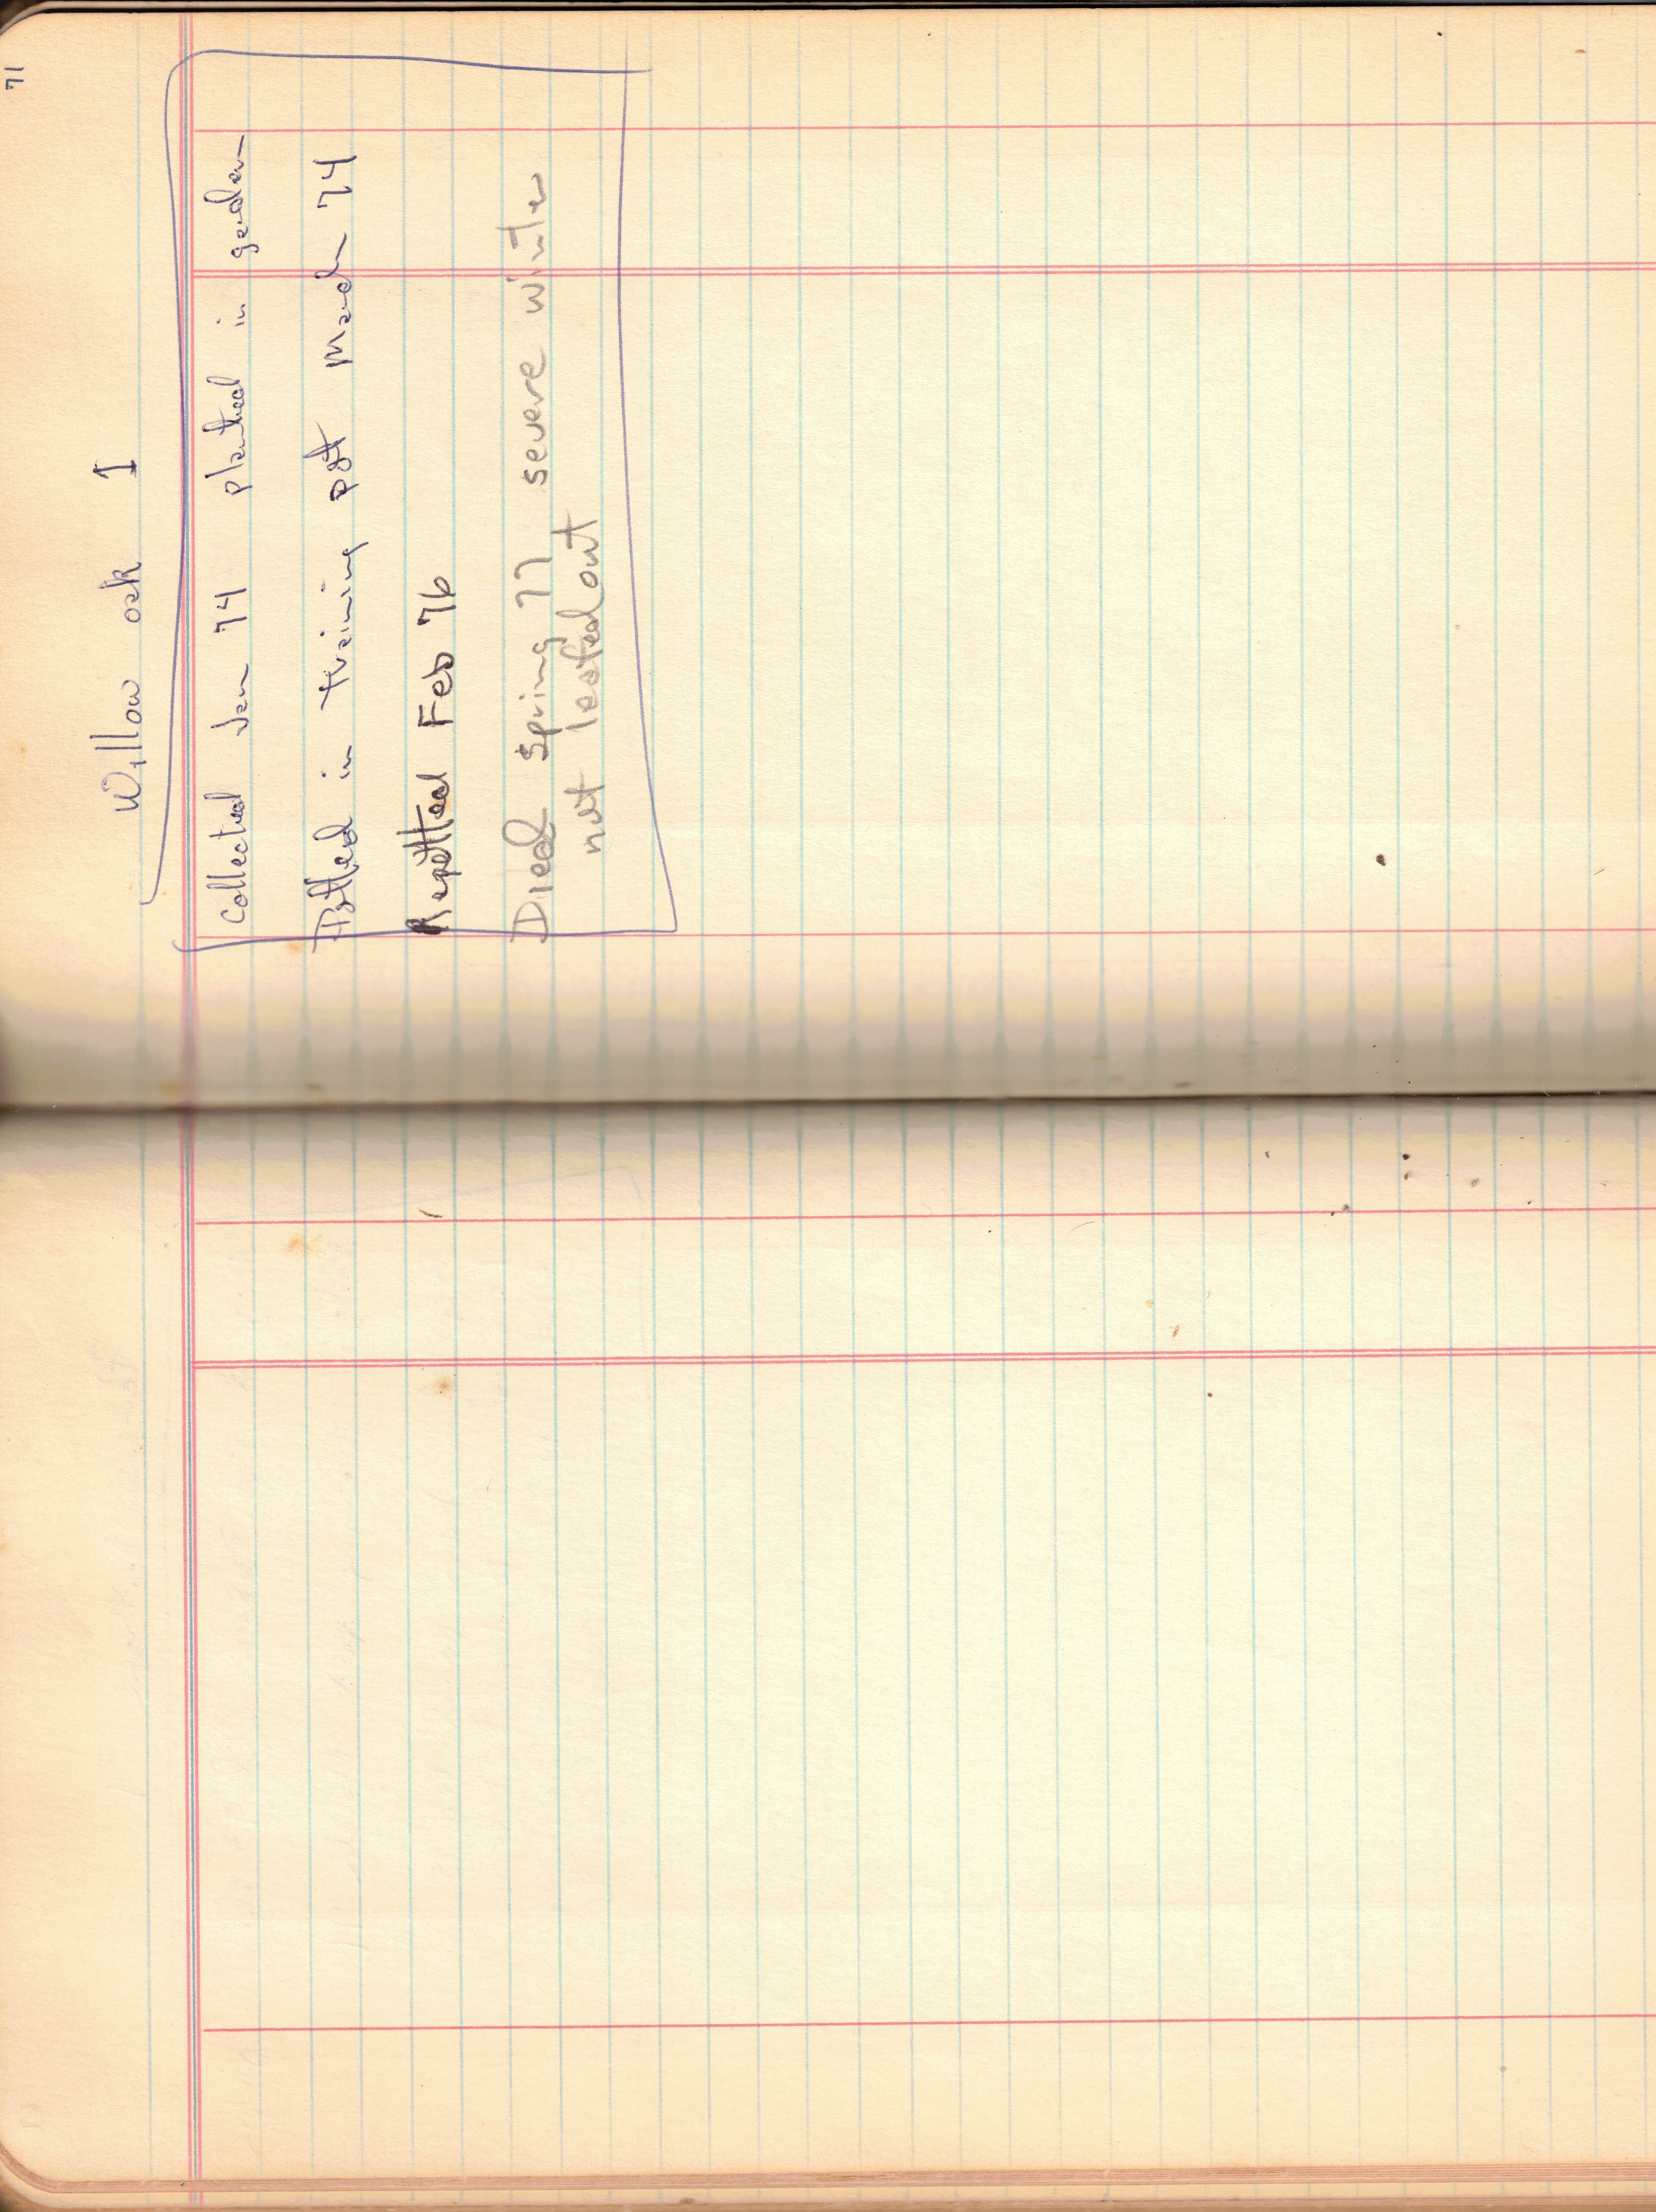 71
Willow oak 1
Collected Jan 74 planted in garden
Potted in training pot March 74
Repotted Feb 76
Died Spring 77, severe winter
not leafed out